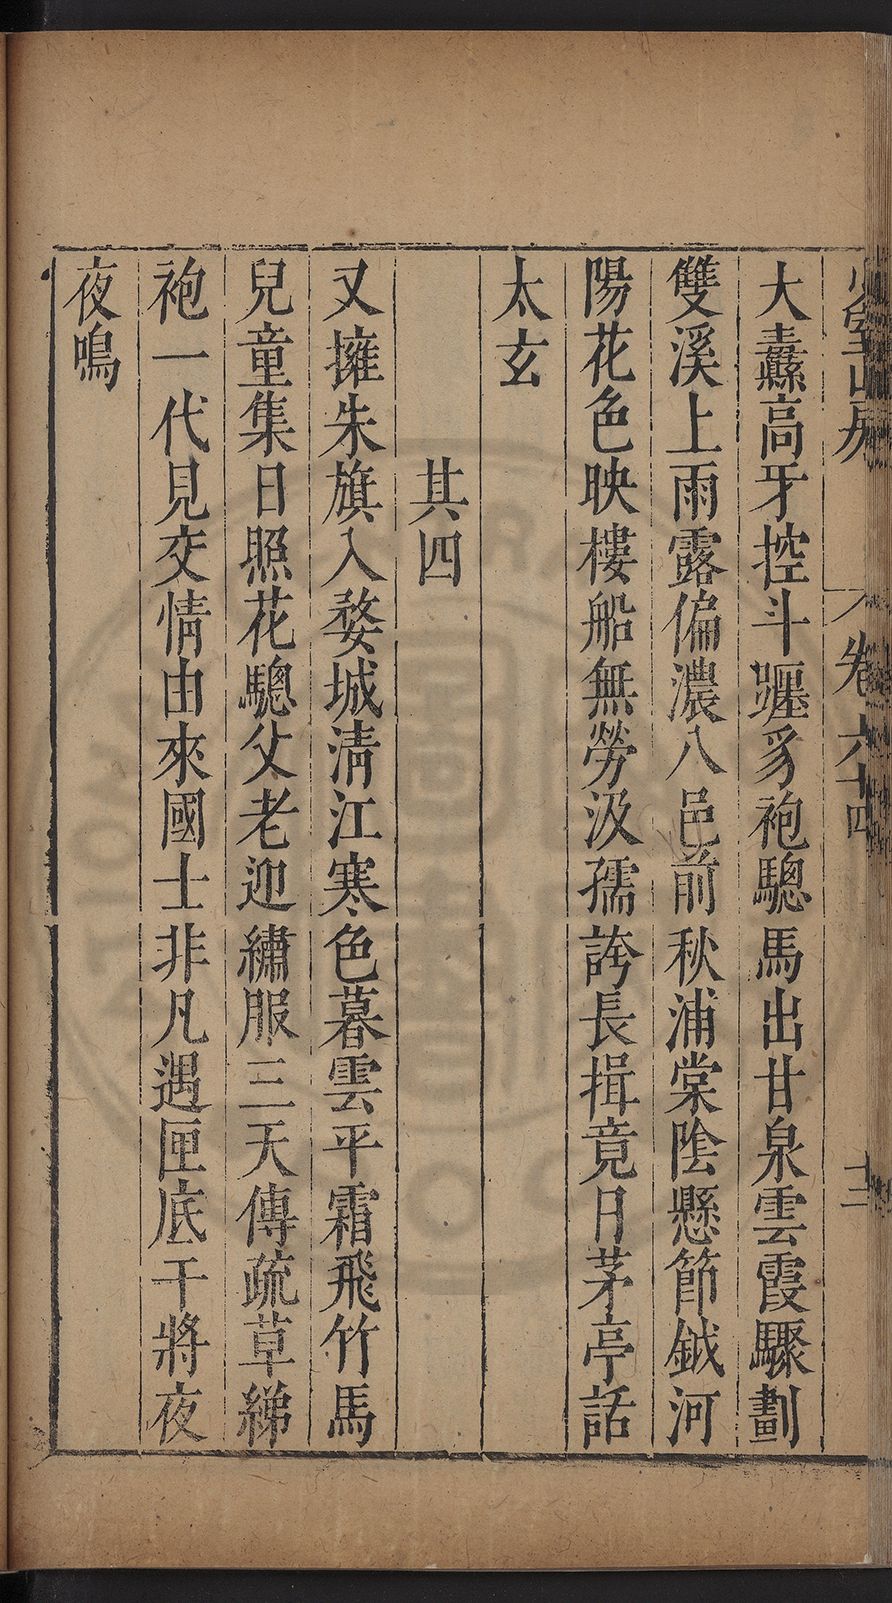 少室山房 卷六十四 十二
大纛高牙控斗躔豸袍驄馬出甘泉雲霞驟劃
雙溪上雨露偏濃八邑前秋浦棠陰懸節鉞河
陽花色映樓船無勞汲孺誇長揖竟日茅亭話
太玄
其四
又擁朱旗入婺城淸江寒色暮雲平霜飛竹馬
兒童集日照花驄父老迎繡服三天傳疏草綈
袍一代見交情由來國士非凡遇匣底干將夜
夜鳴